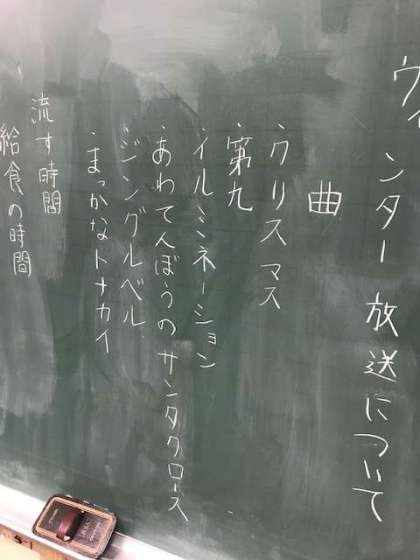 ウィンター放送について
曲
・クリスマス
・第九
・イルミネーション
・あわてんぼうのサンタクロース
・ジングルベル
・まっかなトナカイ
・流す時間
給食の時間